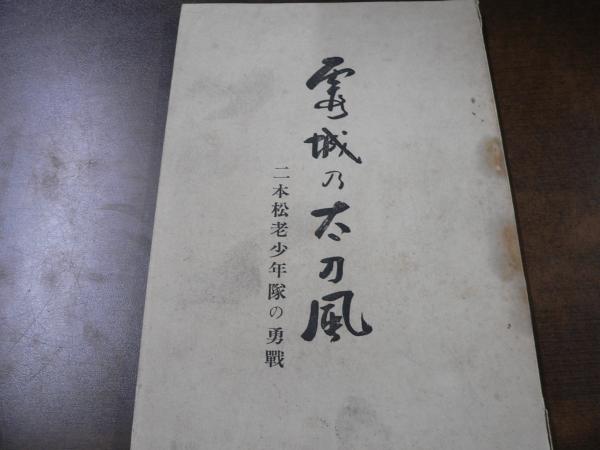 霞城乃太刀風
二本松老少年隊の勇戰